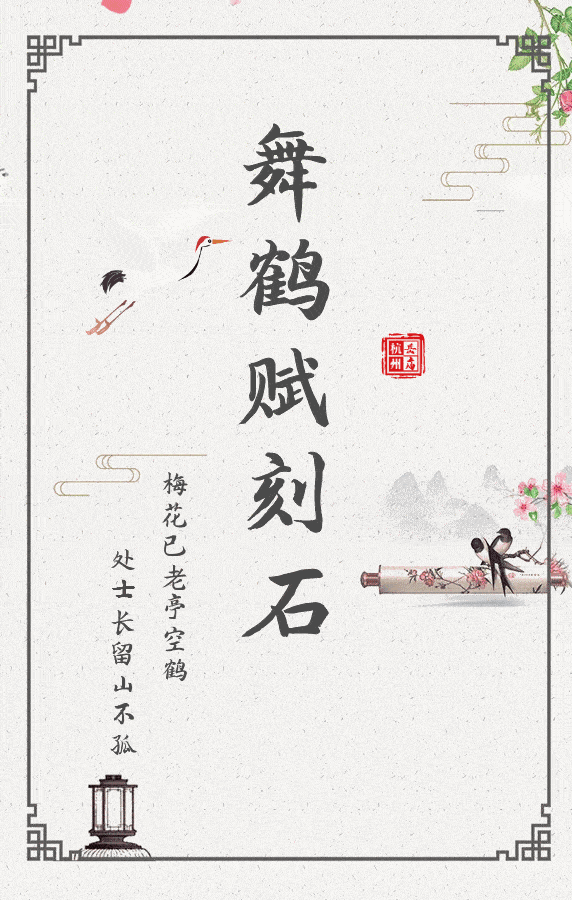 舞鹤赋刻石
岳庙
杭州
梅花已老亭空鹤
处士长留山不孤